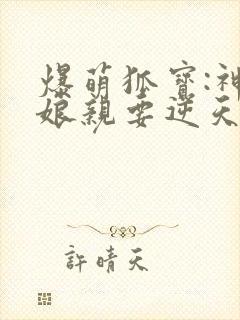 爆萌狐寶:神
娘親要逆天
許晴天